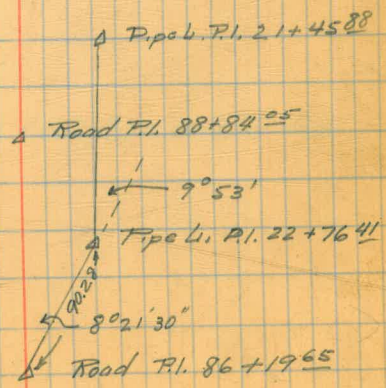 Pipe L. P.I. 21+45 88
Road P.I. 88+84 05
9° 53'
Pipe Li. P.I. 22+76 41
90.28
8° 21' 30"
Road P.I. 86+19 65